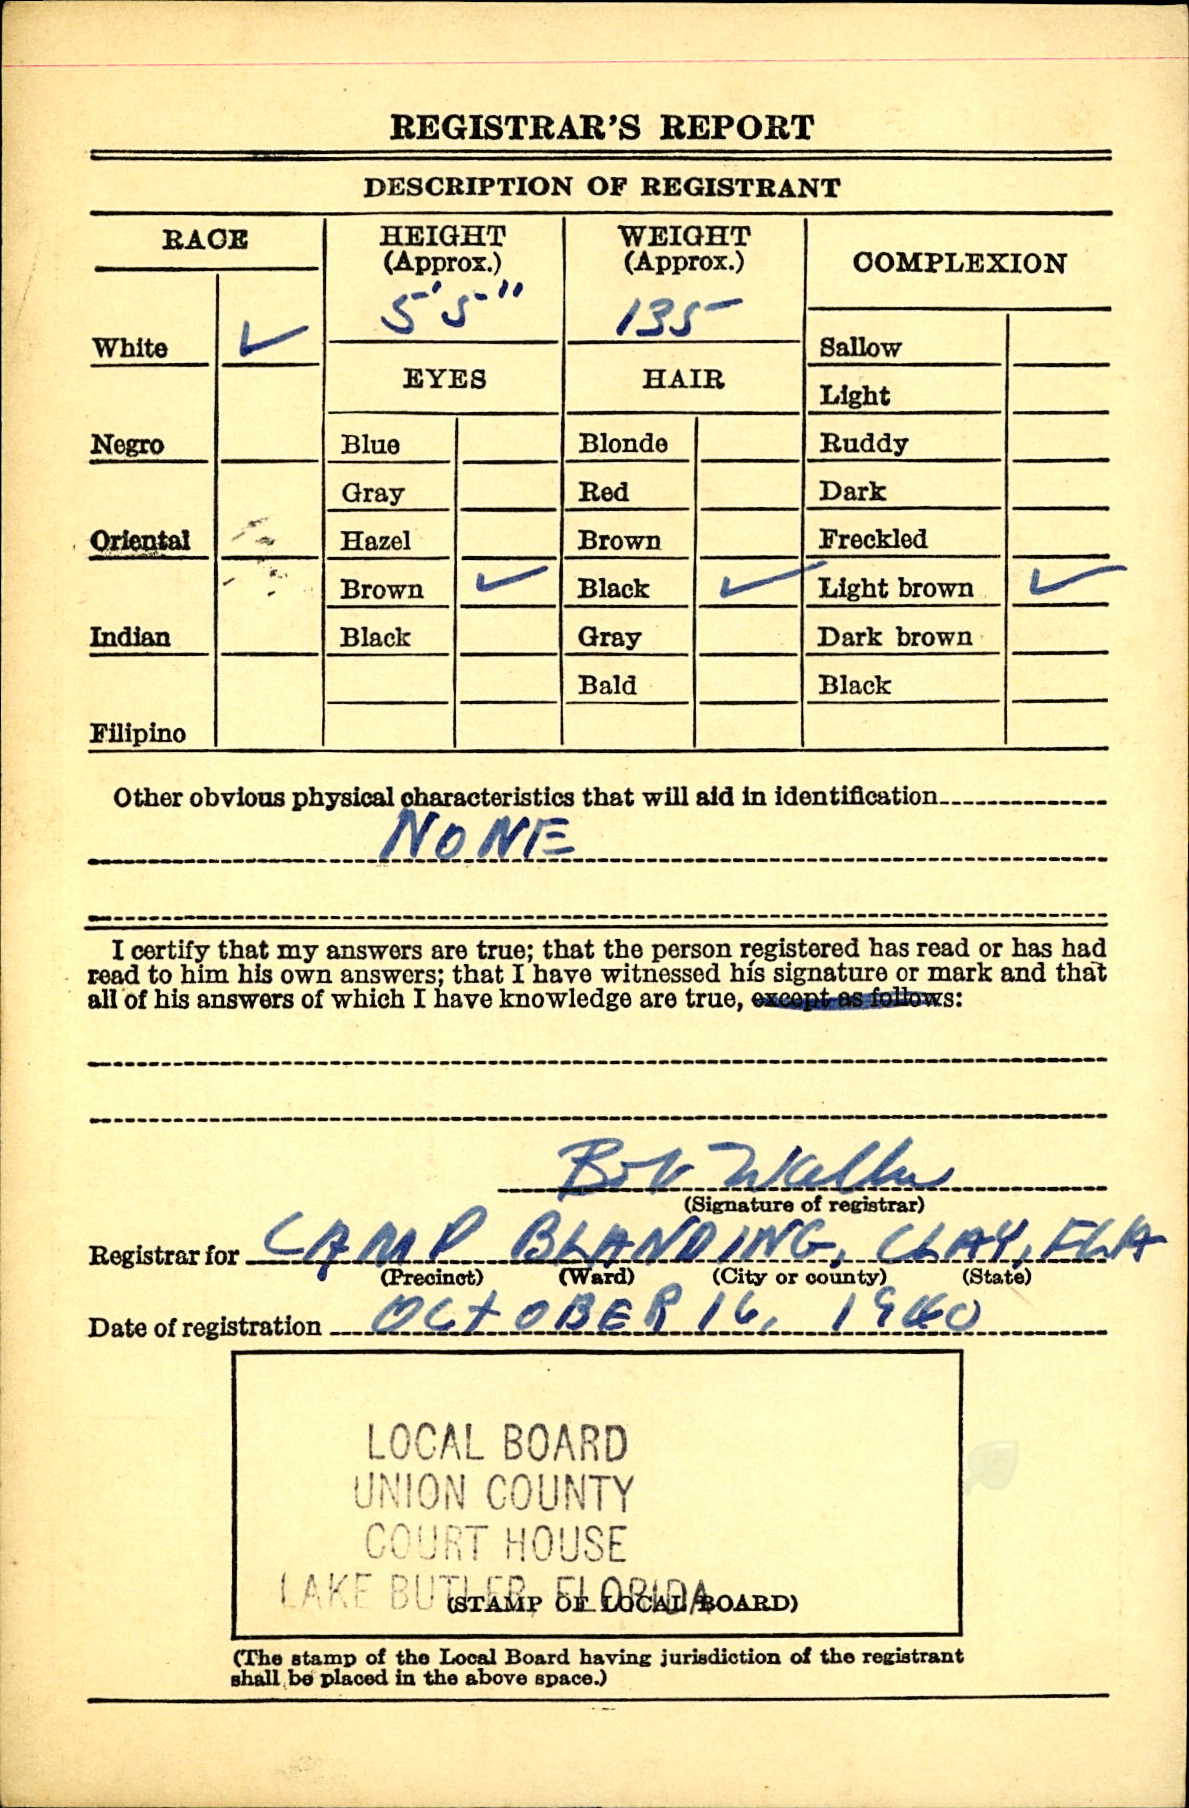 REGISTRAR'S REPORT
DESCRIPTION OF REGISTRANT
RACE
HEIGHT
(Approx.)
WEIGHT
(Approx.)
COMPLEXION
5'5"
135
White ✓
Sallow
EYES
HAIR
Light
Negro
Blue
Blonde
Ruddy
Gray
Red
Dark
Oriental
Hazel
Brown
Freckled
Brown ✓
Black ✓
Light brown ✓
Indian
Black
Gray
Dark brown
Bald
Black
Filipino
Other obvious physical characteristics that will aid in identification
NONE
I certify that my answers are true; that the person registered has read or has had
read to him his own answers; that I have witnessed his signature or mark and that
all of his answers of which I have knowledge are true, except as follows:
Bob Walker
(Signature of registrar)
Registrar for CAMP BLANDING, CLAY, FLA
(Precinct) (Ward) (City or county) (State)
Date of registration OCTOBER 16, 1940
LOCAL BOARD
UNION COUNTY
COURT HOUSE
LAKE BUTLER, FLORIDA
(STAMP OF LOCAL BOARD)
(The stamp of the Local Board having jurisdiction of the registrant
shall be placed in the above space.)